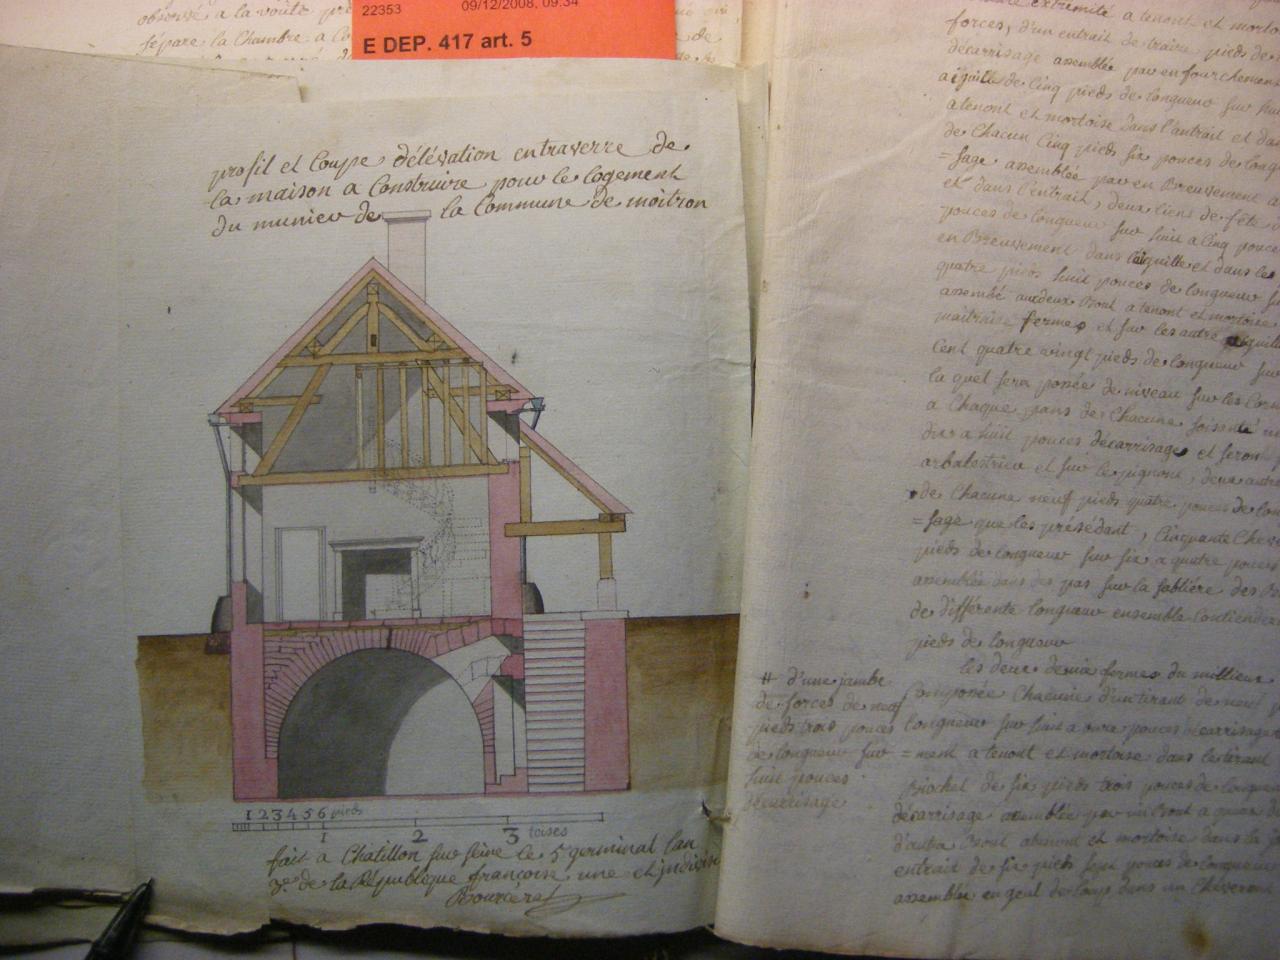 observé a la voûte
sépare la Chambre a
22353 09/12/2008, 09:34
E DEP. 417 art. 5
profil et Coupe d'élévation entraverre de
la maison a Construire pour le logement
du munier de la Commune de moitron
1 2 3 4 5 6 pieds
1 2 3 toises
fait a Chatillon sur seine le 5 germinal lan
3.e de la République francoise une et jndivisi
extrémité a tenont et morto
forces, d'un entrait de traize pieds de
décarrisage assemblée par en fourchement
aiguille de Cinq pieds de longueur sur hui
a tenont et mortoise dans l'antrait et da
de Chacun Cinq pieds six pouces de long
=sage assemblée par en Breuvement a
et dans l'entrait, deux liens de fête
pouces de longueur sur huit a Cinq pouce
en Breuvement dans laiguille et dans le
quatre pieds huit pouces de longueur
assemblé aux deux Bout a tenont et mortoise
maitraisse fermes et sur les autre aiguill
Cent quatre vingt pieds de longueur sur
la quel sera posée de niveau sur les
a Chaque pans de Chacune soisente
dix a huit pouces décarrisage et seron
arbalestrier et sur le pignont, deux autre
de Chacune neuf pieds quatre pouces de
=sage que les présédant, Cinquante Che
pieds de longueur sur six a quatre pouces
assemblée dans des pas sur la sabliére des
de différente longueur ensemble Contiende
pieds de longueur
les deux demie fermes du millieu
Composée Chacune d'un tirant de neuf
longueur sur huit a onze pouces décarrisage
=ment a tenont et mortoise dans le tirant
Blochet de six pieds trois pouces de longue
décarrisage assemblée par un Bout a queue
d'autre Bout a tenont et mortoise dans la
entrait de six pieds sept pouces de longueur
assemblée en geul de loup dans un Chevront
# d'une jambe
de forces de neuf
pieds trois pouces
de longueur sur
huit pouces
décarrisage